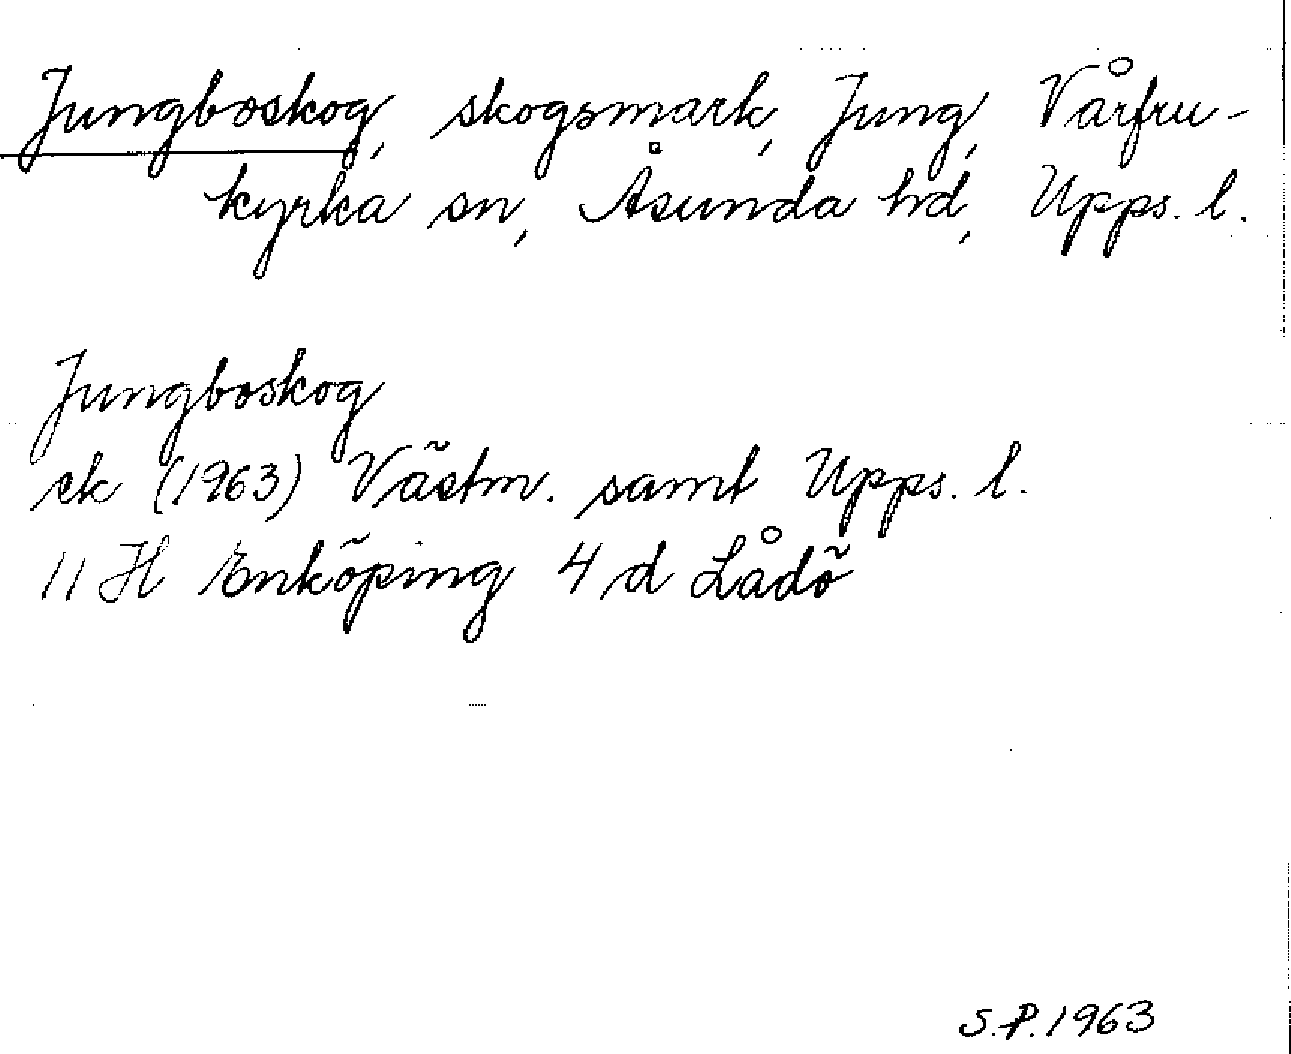 Jungboskog, skogsmark, Jung, Vårfru-
kyrka sn, Åsunda hd, Upps. l.
Jungboskog
ek (1963) Västm. samt Upps. l.
11 H Enköping 4 d Lådö
S.P. 1963